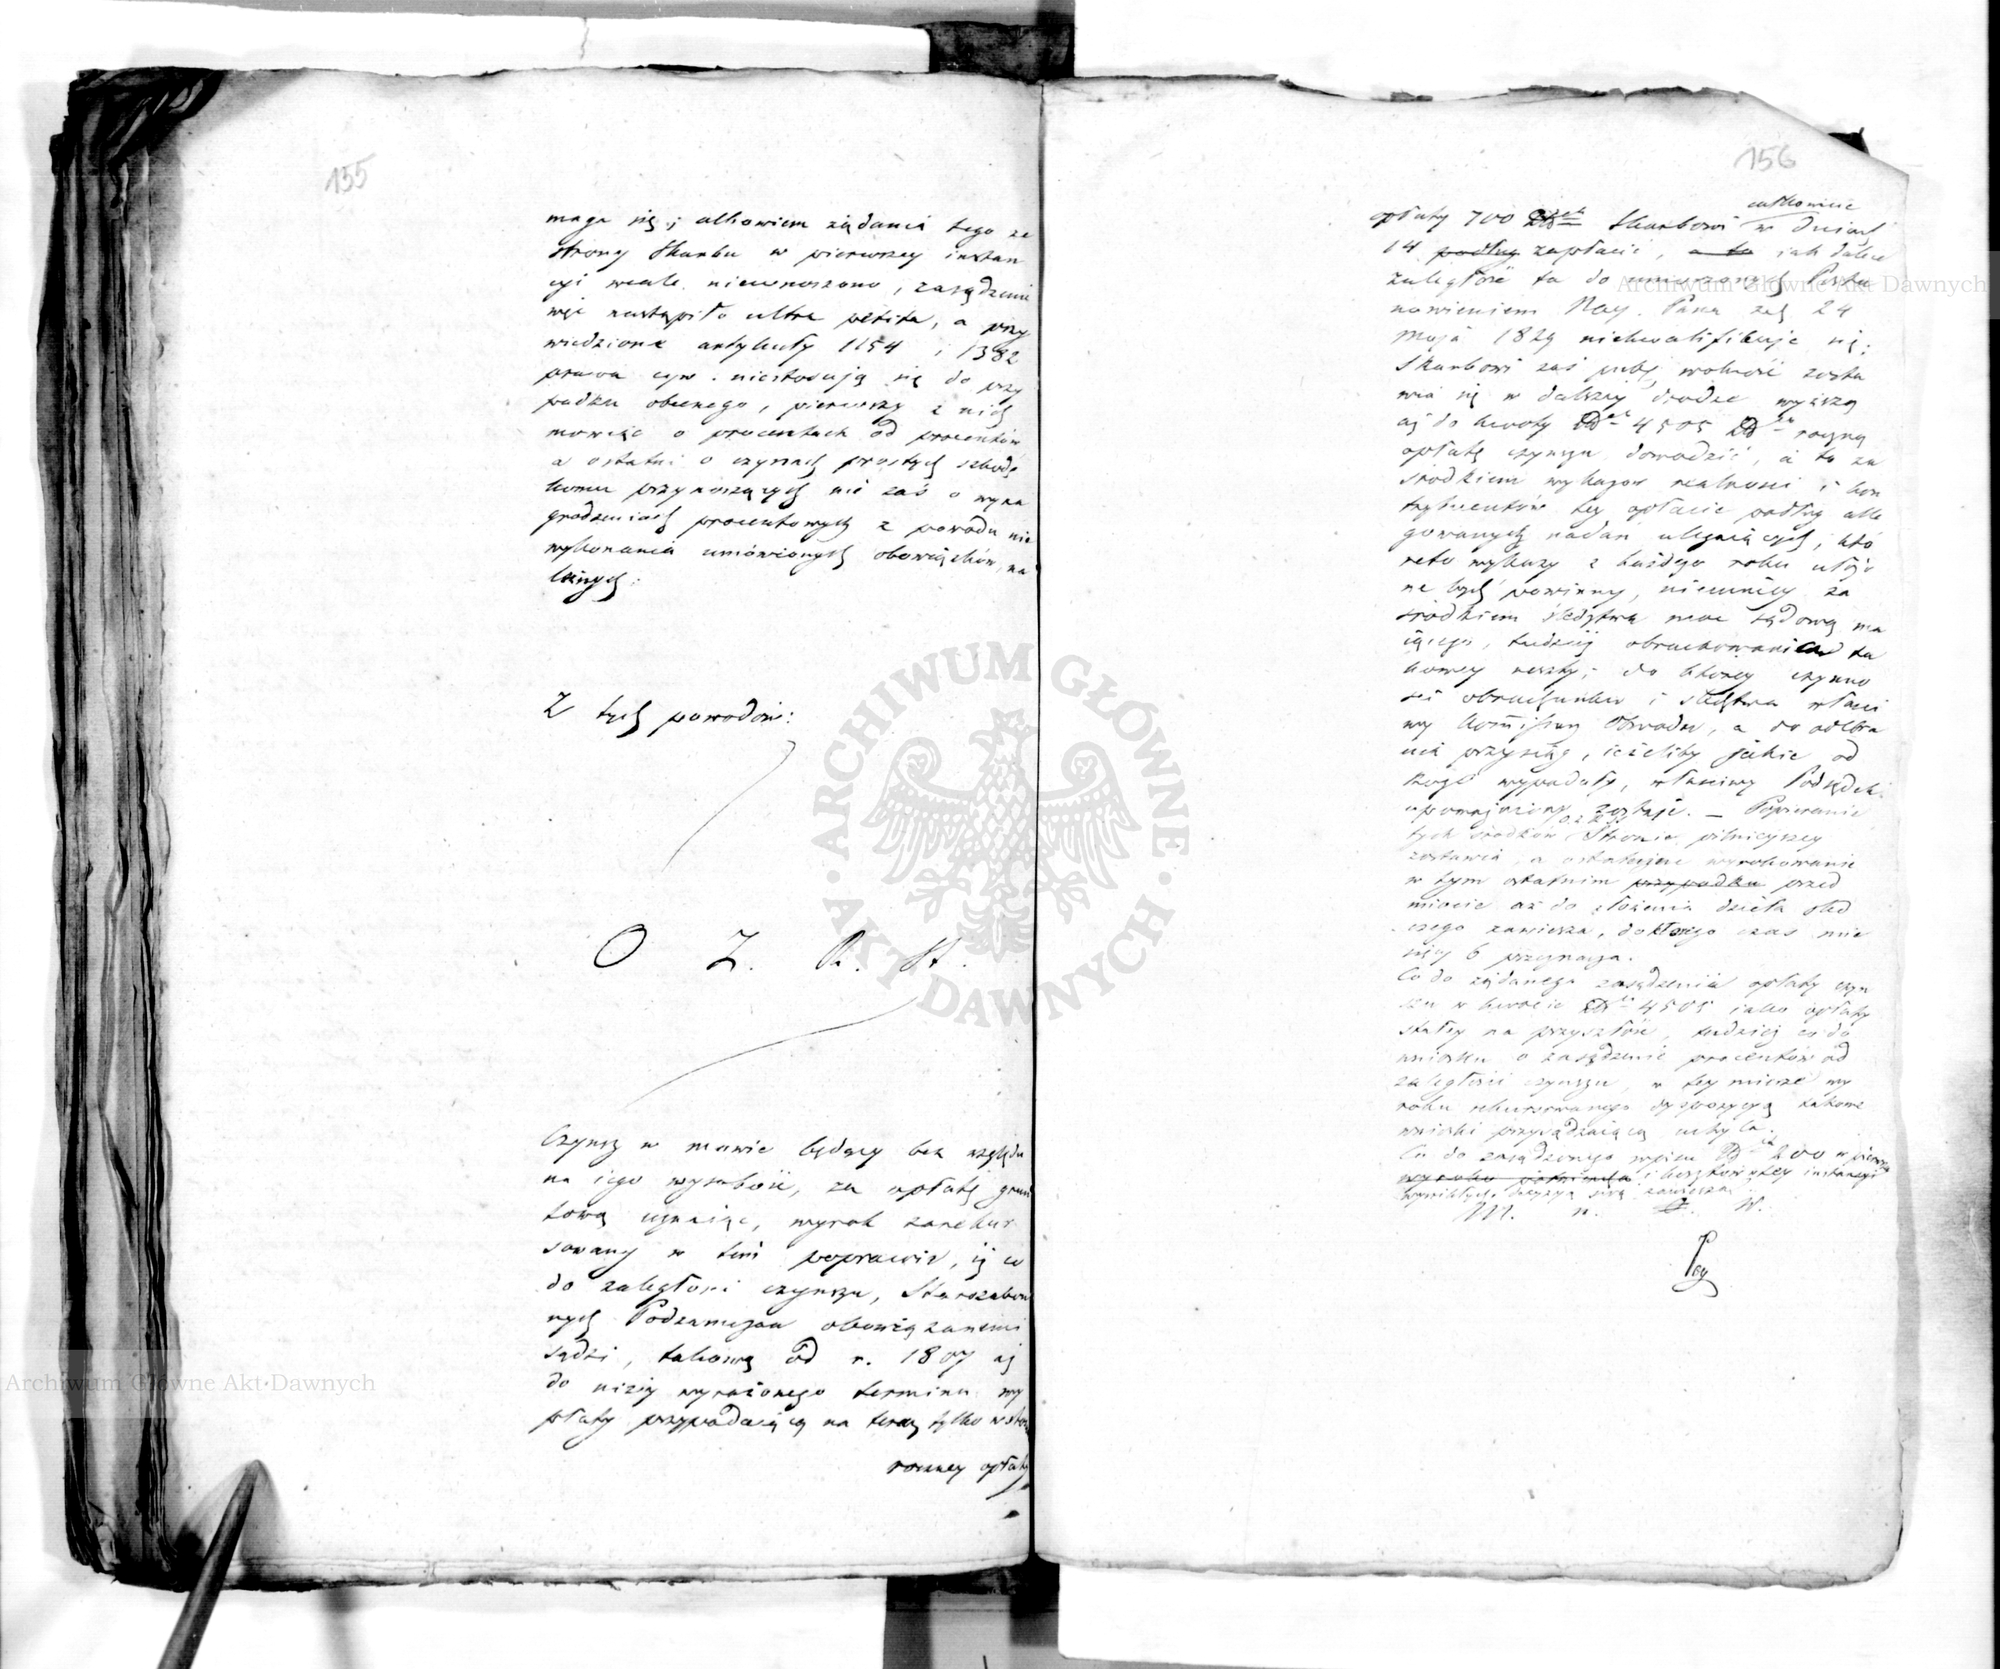 155
maga się; albowiem żądania tego ze
strony Skarbu w pierwszey instan
cyi wcale niewnoszono, zasądzenie
więc nastąpiło ultra petita, a przy
wiedzione artykuły 1154 i 1382
prawa cyw. niestosują się do przy
padku obecnego, pierwszy z nich
mówiąc o procentach od procentów
a ostatni o czynach prostych szkodę
komu przynoszących nie zaś o wyna
grodzeniach procentowych z powodu nie
wykonania umówionych obowiązków, na
leżnych;
Z tych powodów:
O Z. R. St.
Czynsz w mowie będący bez względu
na iego wysokość, za opłatę grun
tową uznaiąc, wyrok zarekur
sowany w tem poprawia, iż co
do zaległości czynszu, Starozakon
nych Podzamcza obowiązanemi
sądzi, takową od r. 1807 aż
do niżey wyrażonego terminu wy
płaty przypadaiącą na teraz tylko w sto
rocznej opłaty
156
całkowicie
opłaty 700 Skarbowi w dniach
14 podług zapłacić, a to iak dalece
zaległość ta do umorzonych Posta
nowieniem Nay. Pana z d. 24
Maja 1829 niekwalifikuje się;
Skarbowi zaś pub. wolność zosta
wia się w dalszey drodze wyższą
aż do kwoty 4505 roczną
opłatę czynszu dowodzić, a to za
środkiem wykazów realności i kon
trybuentów tey opłacie podług alle
gowanych nadań ulegaiących, któ
re to wykazy z każdego roku ułożo
ne być powinny, niemniey za
środkiem śledztwa moc sądową ma
iącego, tudzież obrachowania ta
kowey reszty; do którey czynno
ści obrachunku i śledztwa właści
wy Kommissarz Obwodu, a do odebra
nia przysiąg, ieżeliby jakie od
kogo wypadały, właściwy Podsędek
upoważniony zostaje. — Popieranie
tych środków Stronie pilnieyszey
zostawia, a ostateczne wyrokowanie
w tym ostatnim przypadku przed
miocie aż do złożenia dzieła śled
czego zawiesza, do którego czas mie
sięcy 6 przeznacza.
Co do żądanego zasądzenia opłaty czyn
szu w kwocie 4505 iako opłaty
stałey na przyszłość, tudzież co do
wniosku o zasądzenie procentów od
zaległości czynszu, w tey mierze wy
roku rekursowanego dyspozycyą takowe
wnioski przysądzaiącą uchyla.
Co do zasądzonego wpisu 200 w pierwszey
i kosztów tey instancyi
wynikłych decyzyą swą zawiesza
M. n. W.